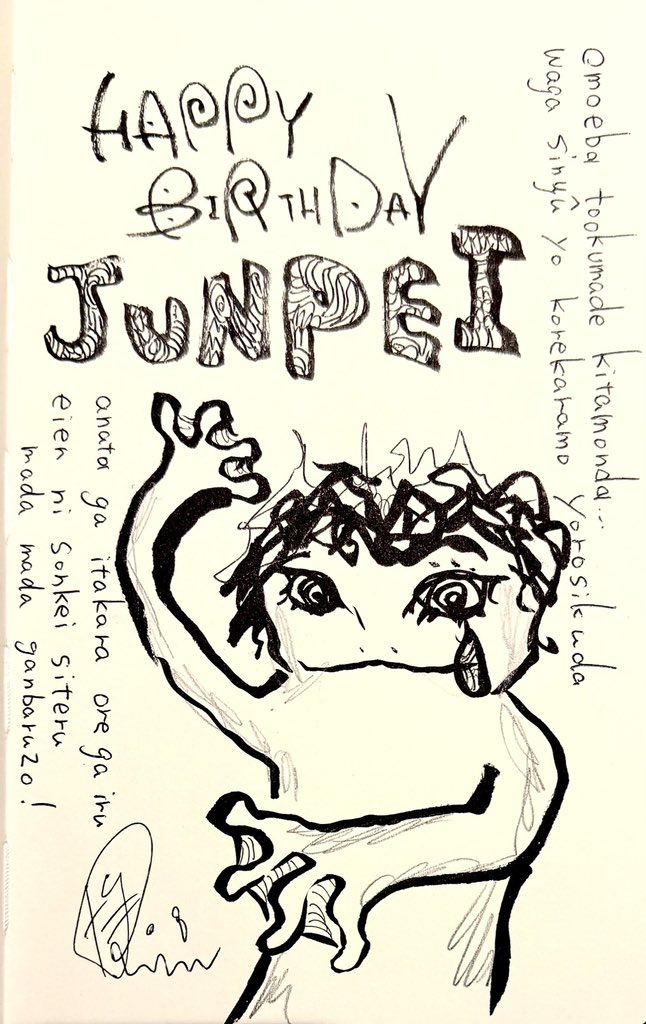 HAPPY
BIRTHDAY
JUNPEI
omoeba tookumade kitamonda...
waga sinyû yo korekaramo yorosikuda
anata ga itakara ore ga iru
eien ni sonkei siteru
mada mada ganbaruzo!